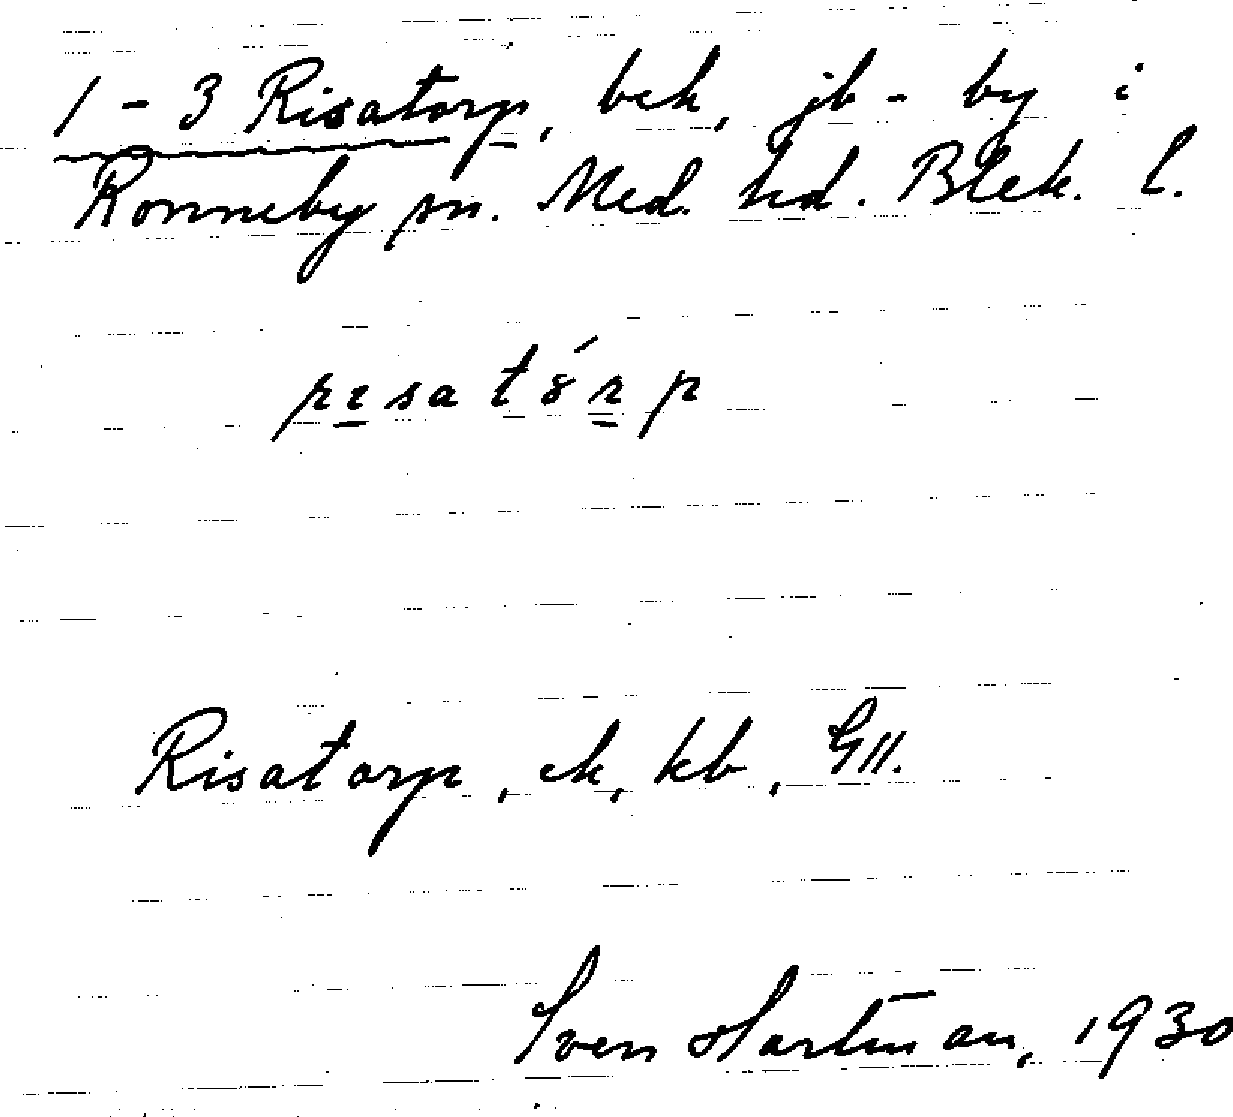 1-3 Risatorp, bek, jb-by i
Ronneby sn. Med. hd. Blek. l.
Risatorp, ek, kb, GII.
Sven Hartman, 1930